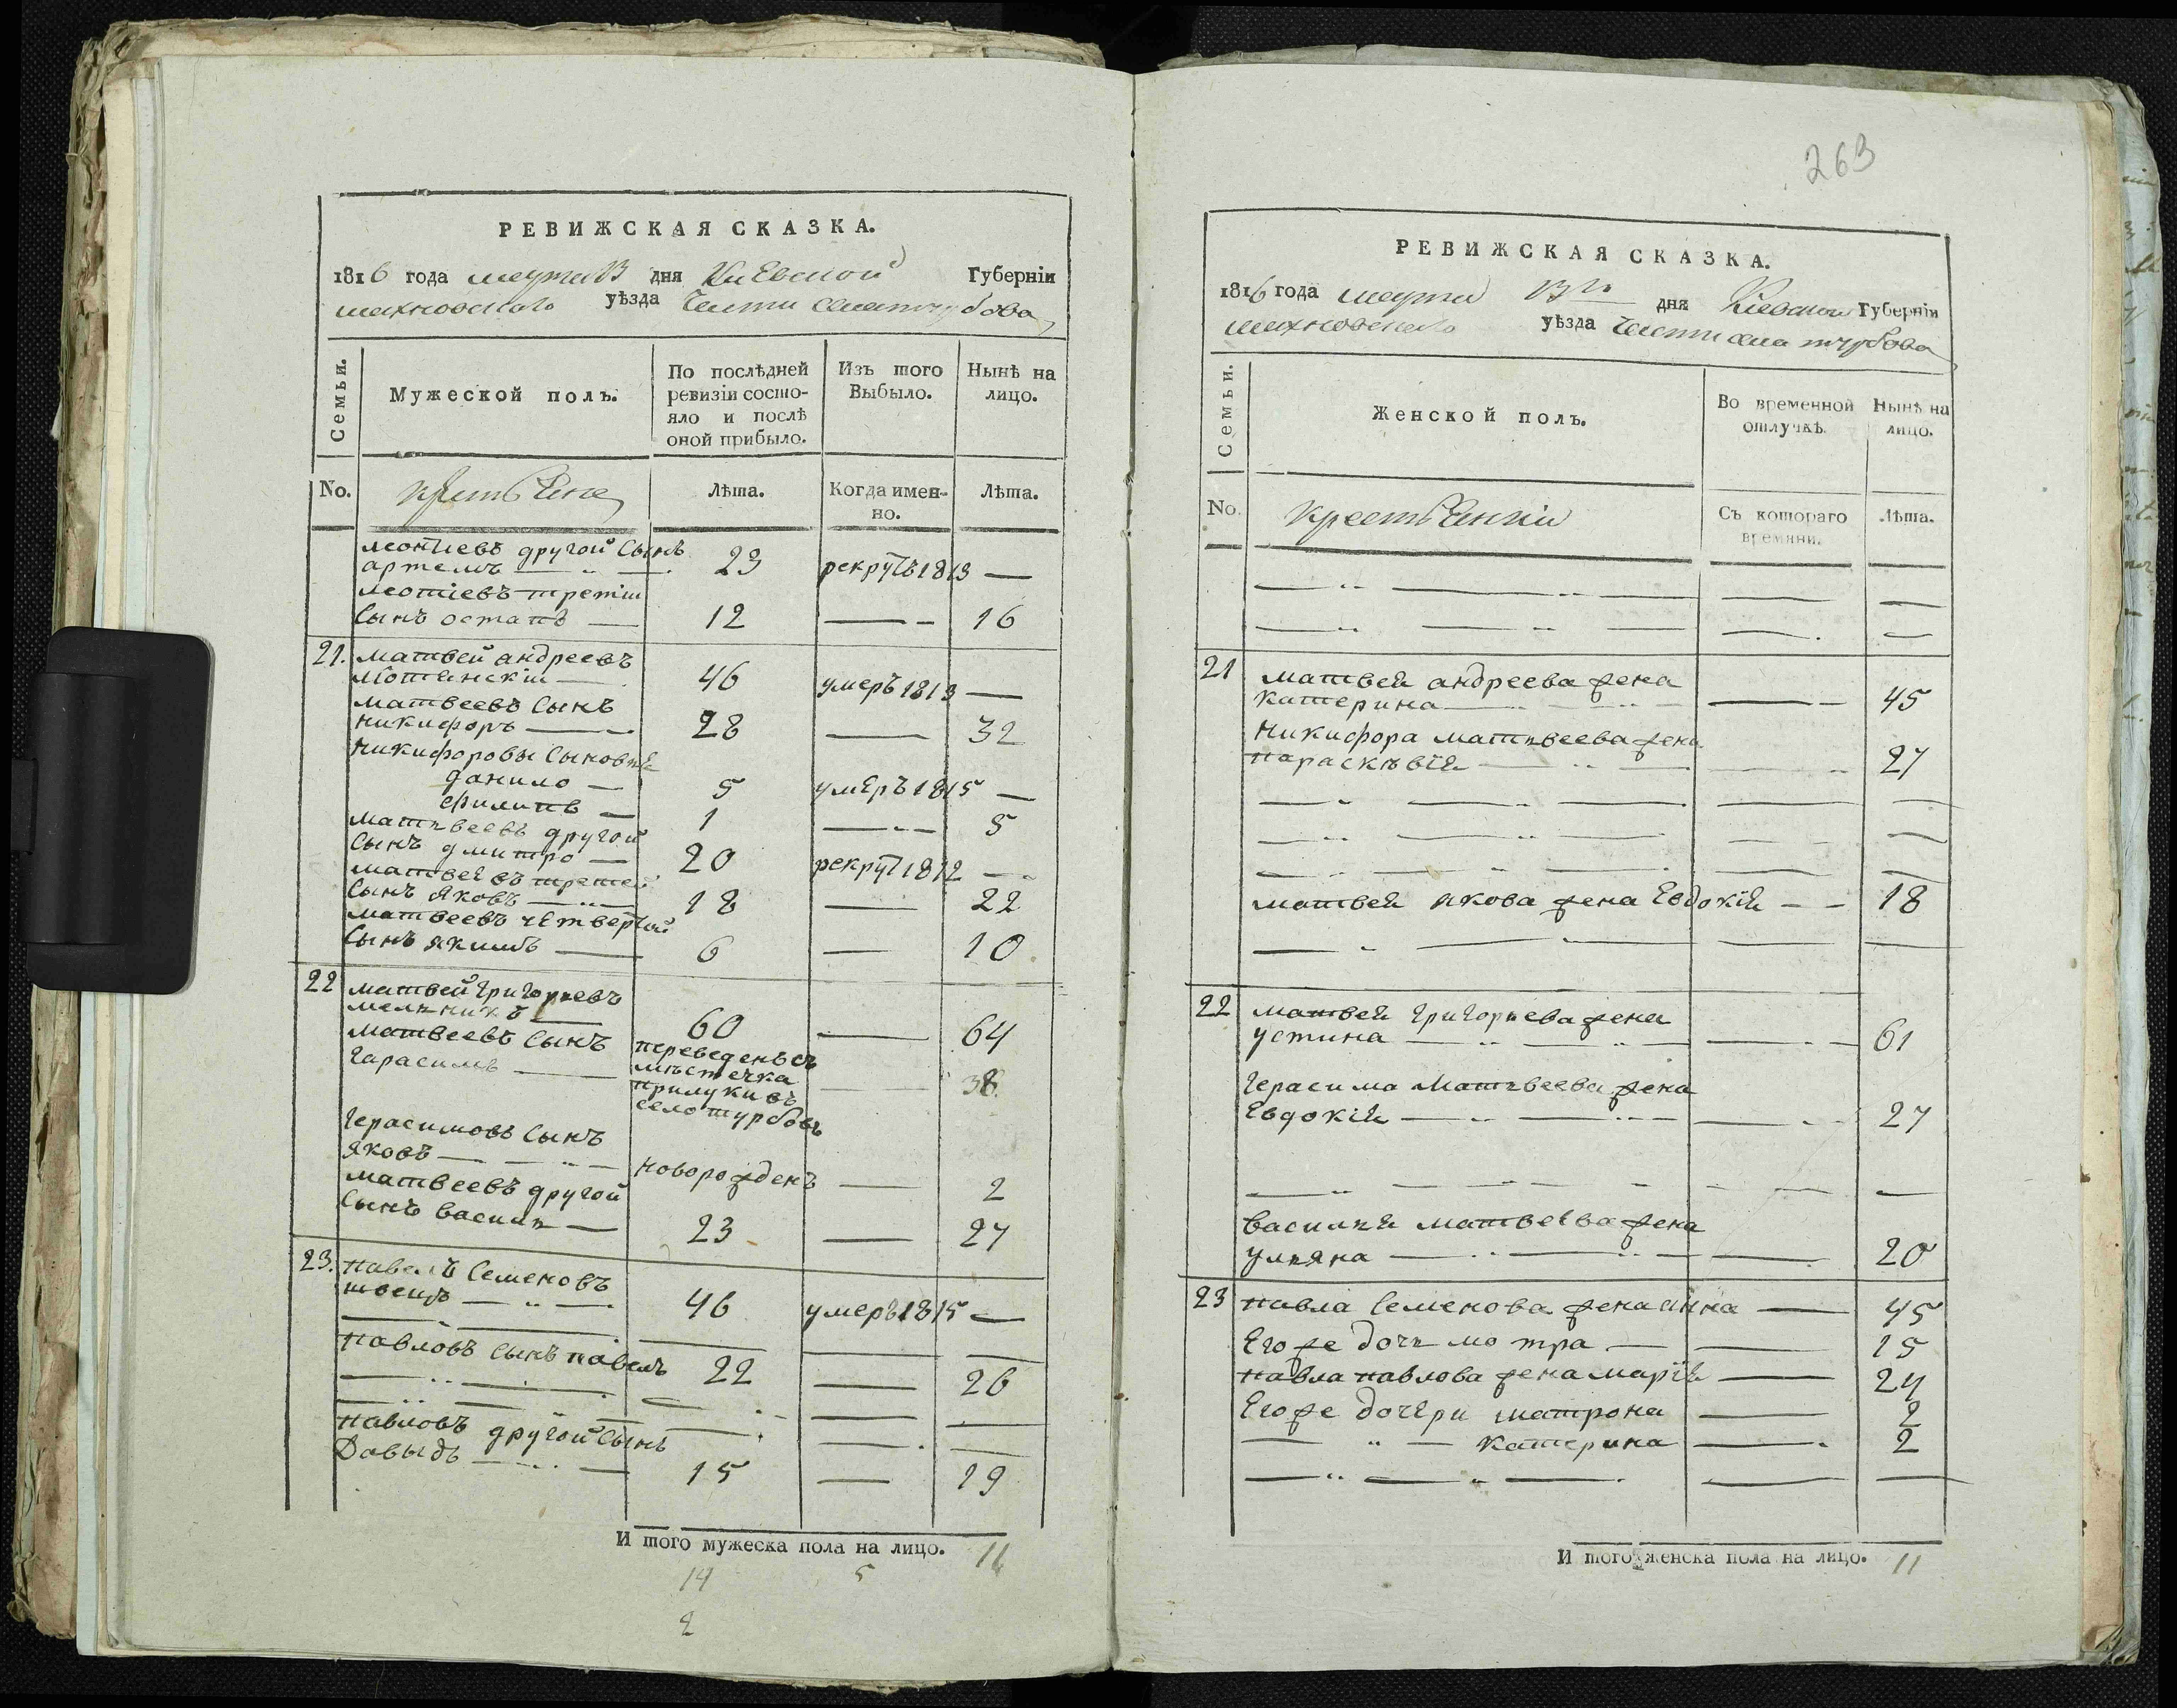 РЕВИЖСКАЯ СКАЗКА.
1816 года марта 13 дня Киевской Губерніи
махновского уѣзда Части села турбова
Семьи.
Мужеской полъ.
По послѣдней ревизіи состо-
яло и послѣ
оной прибыло.
Изъ того
Выбыло.
Нынѣ на
лицо.
No.
крестьяне
Лѣта.
Когда имен-
но.
Лѣта.
леонтіевъ другой Сынъ
артемъ 23 рекрутъ 1813
леонтіевъ третіи
Сынъ остапъ 12 16
21. матвей андреевъ
46 умеръ 1813
матвеевъ Сынъ
никифоръ 28 32
Никифоровы Сыновья
данило 5 умеръ 1815
филипъ 1 5
матвеевъ другой
Сынъ дмитро 20 рекрут 1812
матвеевъ третей
Сынъ яковъ 18 22
матвеевъ четвертой
Сынъ якимъ 6 10
22 матвей григорьевъ
мельникъ 60 64
матвеевъ Сынъ
гарасимъ переведенъ съ
мѣстечка
прилуки въ
село турбовъ 38
Герасимовъ Сынъ
яковъ новорожденъ 2
матвеевъ другой
Сынъ василь 23 27
23. павелъ Семеновъ
швецъ 46 умеръ 1815
павловъ Сынъ павелъ 22 26
павловъ другой Сынъ
Давыдъ 15 19
И того мужеска пола на лицо. 11
14 5
2
263
РЕВИЖСКАЯ СКАЗКА.
1816 года марта 13го дня Киевской Губерніи
махновского уѣзда Части села турбова
Семьи.
Женской полъ.
Во временной
отлучкѣ.
Нынѣ на
лицо.
No.
крестьянки
Съ котораго
времяни.
Лѣта.
21 матвея андреева жена
катерина 45
Никифора матвеева жена
параскѣвія 27
матвея якова жена Евдокія 18
22 матвея григорьева жена
устина 61
Герасима Матвеева жена
Евдокія 27
василья матвеева жена
ульяна 20
23 павла Семенова жена анна 45
Его же дочь мотра 15
павла павлова жена марія 24
Его же дочери матрона 2
катерина 2
И того женска пола на лицо. 11